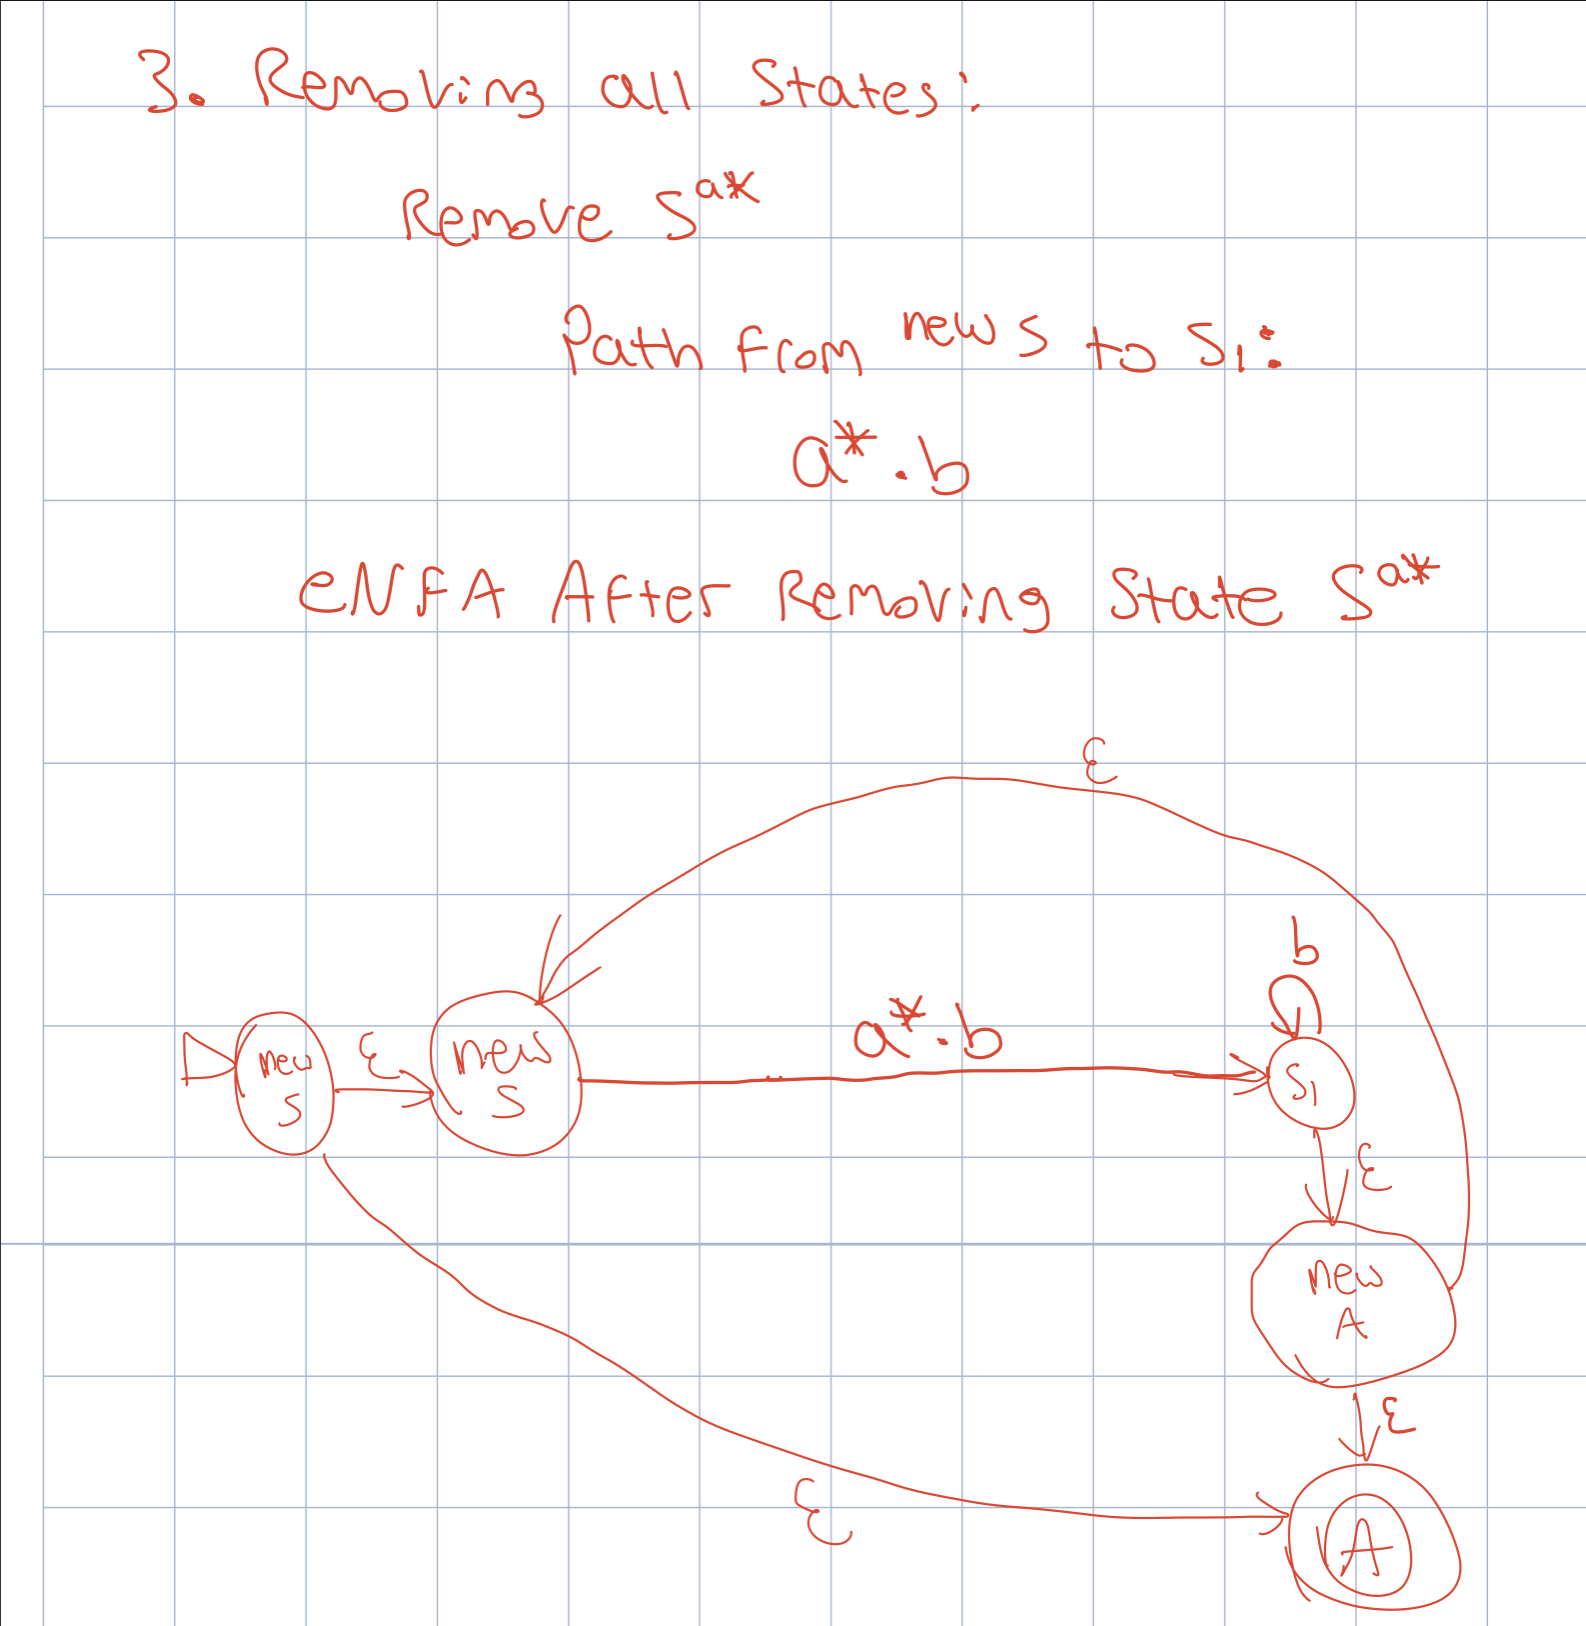 3. Removing all States:
Remove S^a*
Path from new S to S₁:
a* . b
eNFA After Removing State S^a*
ε
b
a* . b
new
S
ε
new
S
S₁
ε
new
A
ε
ε
A